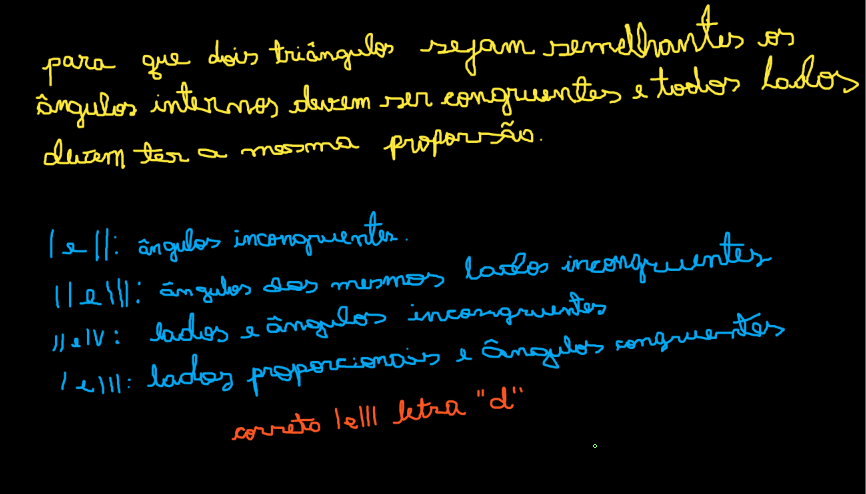 para que dois triângulos sejam semelhantes os
ângulos internos devem ser congruentes e todos lados
devem ter a mesma proporsão.
I e II: ângulos incongruentes.
II e III: ângulos dos mesmos lados incongruentes
II e IV: lados e ângulos incongruentes
I e III: lados proporcionais e ângulos congruentes
correto I e III letra "d"